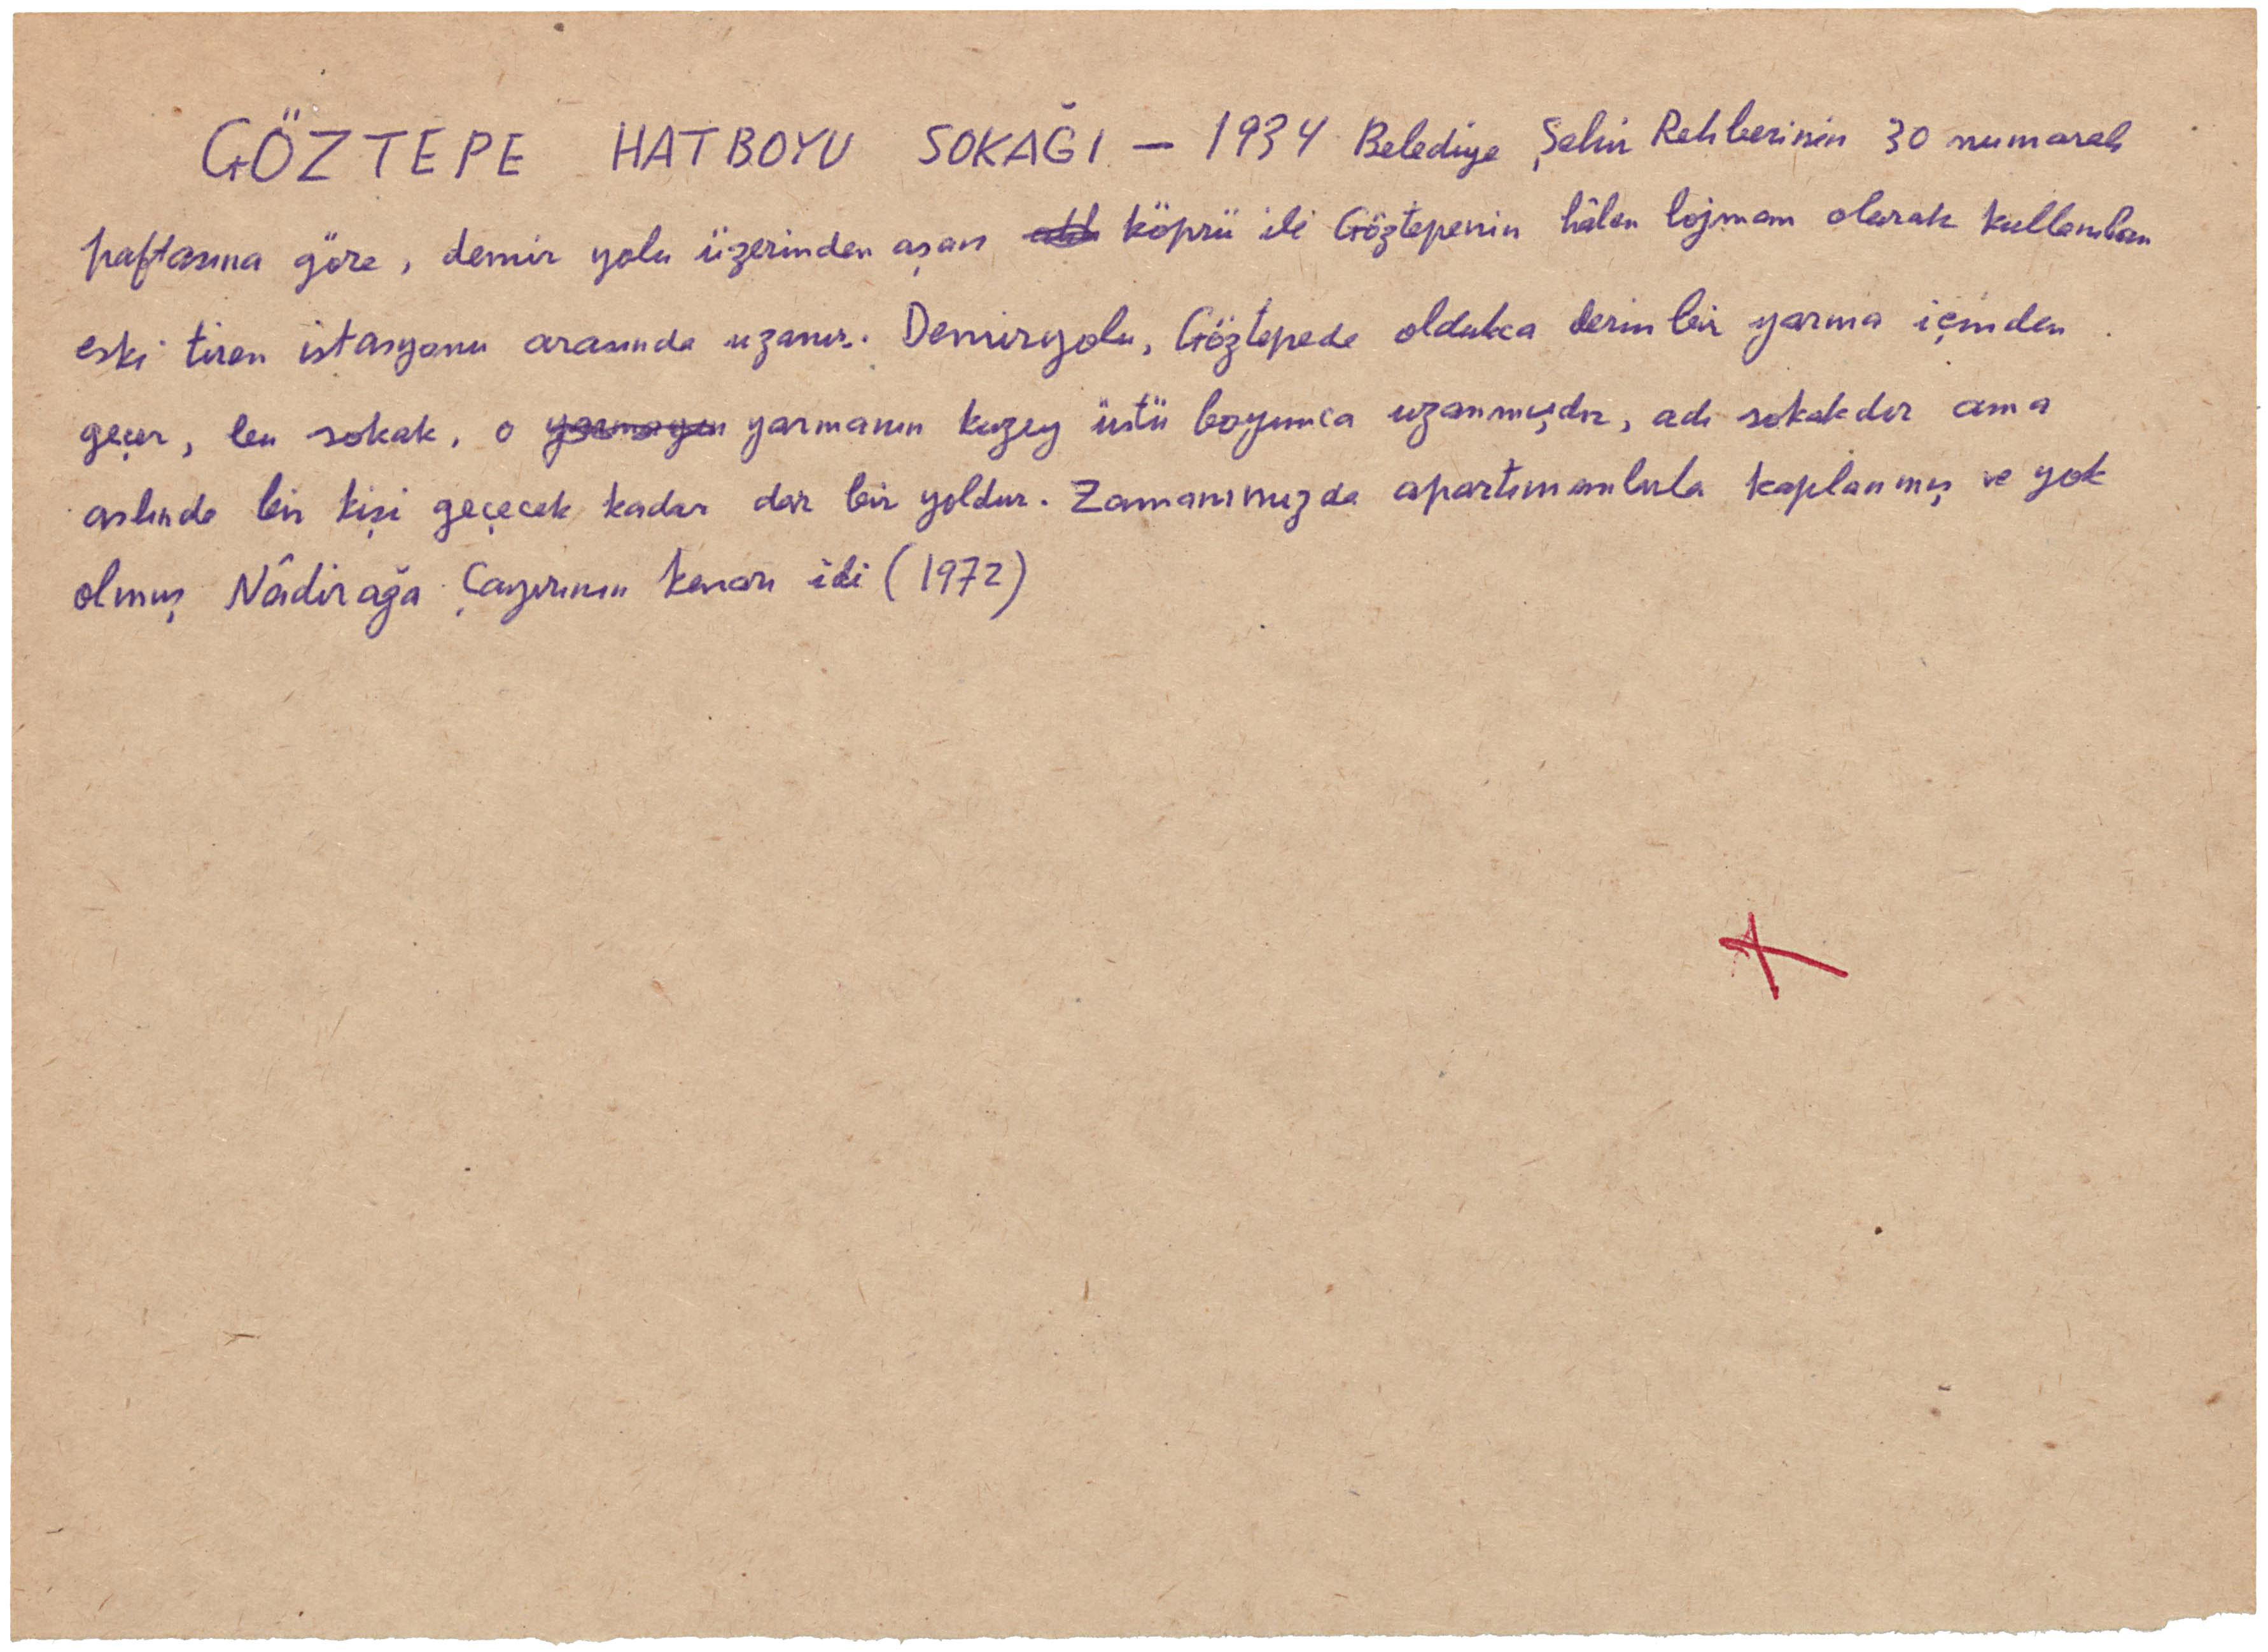 GÖZTEPE HATBOYU SOKAĞI — 1934 Belediye Şehir Rehberinin 30 numaralı
paftasına göre, demir yolu üzerinden aşan köprü ile Göztepenin hâlen lojman olarak kullanılan
eski tiren istasyonu arasında uzanır. Demiryolu, Göztepede oldukca derin bir yarma içinden
geçer, bu sokak, o yarmanın kuzey üstü boyunca uzanmışdır, adı sokakdır ama
aslında bir kişi geçecek kadar dar bir yoldur. Zamanımızda apartımanlarla kaplanmış ve yok
olmuş Nâdirağa Çayırının kenarı idi (1972)